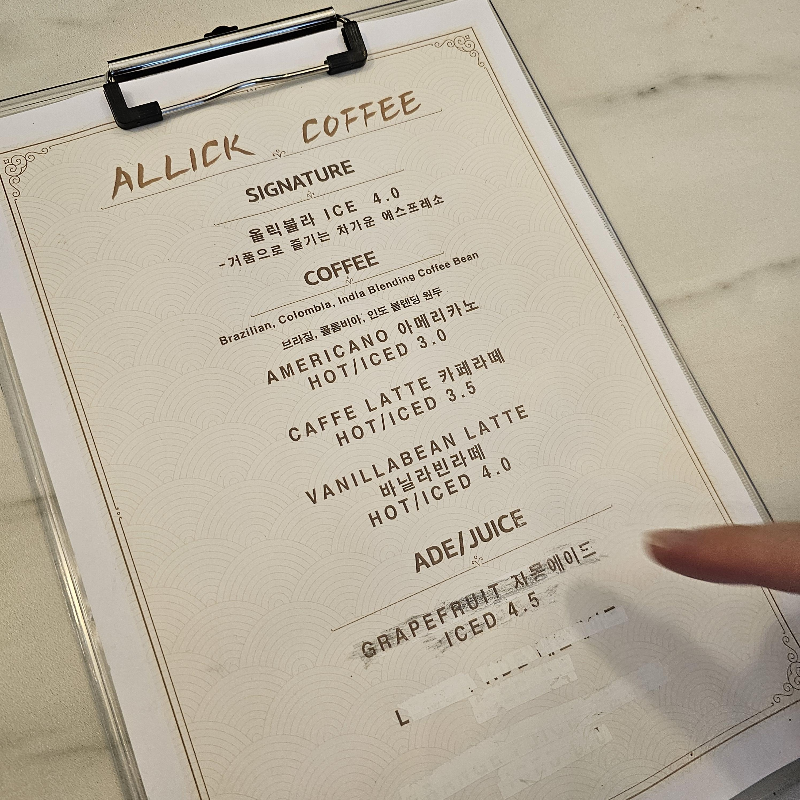 ALLICK COFFEE
SIGNATURE
올릭불라 ICE 4.0
-거품으로 즐기는 차가운 에스프레소
COFFEE
Brazilian, Colombia, India Blending Coffee Bean
브라질, 콜롬비아, 인도 블렌딩 원두
AMERICANO 아메리카노
HOT/ICED 3.0
CAFFE LATTE 카페라떼
HOT/ICED 3.5
VANILLABEAN LATTE
바닐라빈라떼
HOT/ICED 4.0
ADE/JUICE
GRAPEFRUIT 자몽에이드
ICED 4.5
L